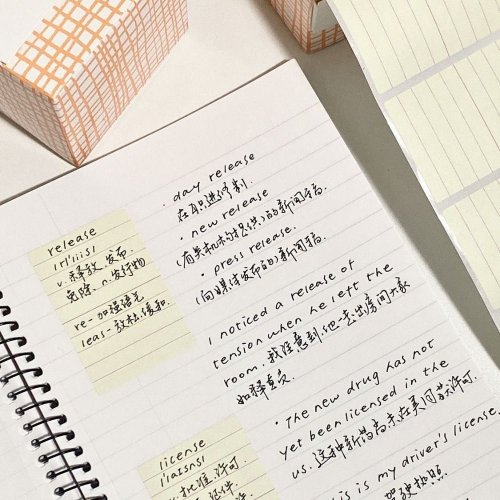 release
/rɪ'liːs/
v. 释放.发布
免除. n. 发行物
re-加强语气
leas-放松.缓和.
· day release
在职进修制.
· new release
(有关机构提供)的新闻稿
· press release.
(向媒体发布的)新闻稿.
I noticed a release of
tension when he left the
room. 我注意到他一走出房间大家
如释重负.
license
/'laɪsns/
批准.许可.
· The new drug has not
yet been licensed in the
US. 这种新药尚未在美国获许可.
is my driver's license.
驾驶执照.